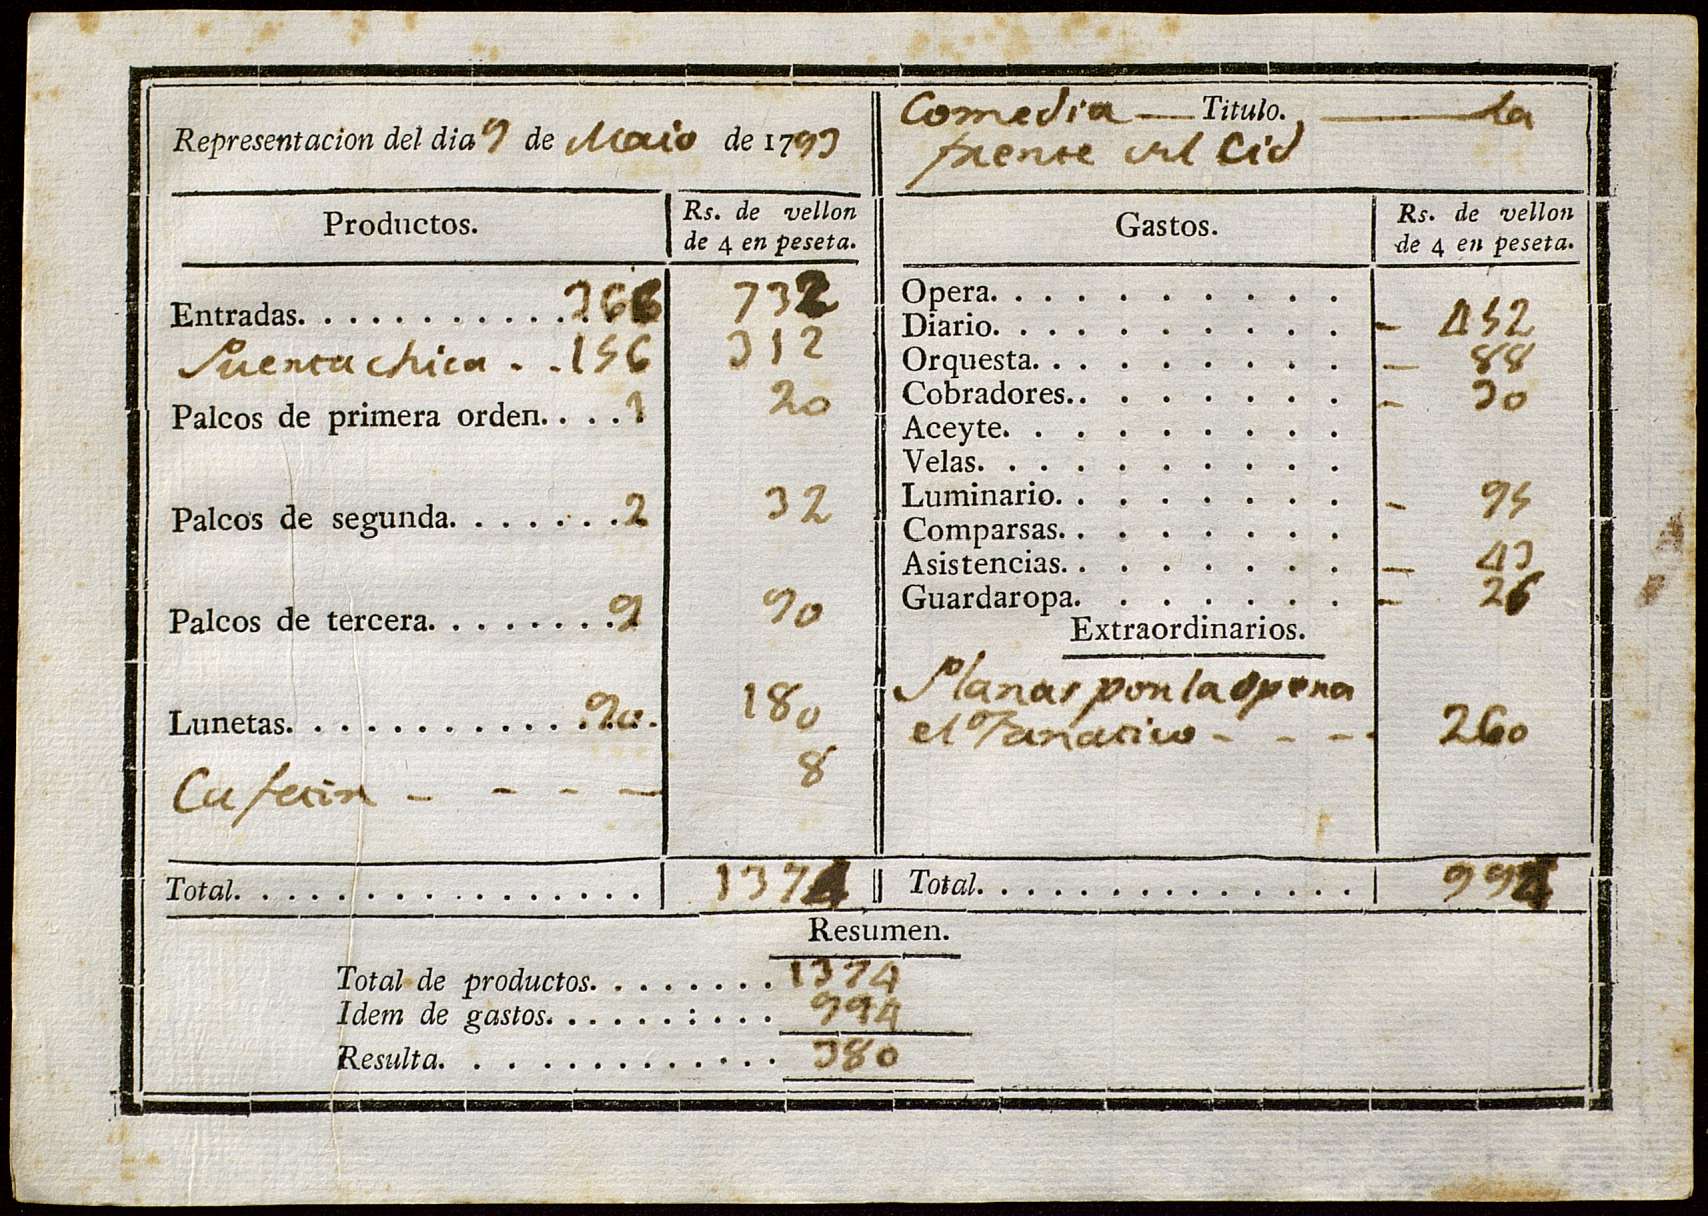 Representacion del dia 9 de Maio de 1793
Comedia — Titulo. — La
frente del Cid
Productos. Rs. de vellon de 4 en peseta.
Entradas. . . . . . . . . . . . 366 732
Puerta chica - - 156 312
Palcos de primera orden. . . . 1 20
Palcos de segunda. . . . . . . 2 32
Palcos de tercera. . . . . . . . 9 90
Lunetas. . . . . . . . . . . . . 90 180
Cafetin - - - - 8
Total. . . . . . . . . . . . . . . . 1374
Gastos. Rs. de vellon de 4 en peseta.
Opera. . . . . . . . . .
Diario. . . . . . . . . . - 452
Orquesta. . . . . . . . . - 88
Cobradores. . . . . . . . - 30
Aceyte. . . . . . . . .
Velas. . . . . . . . . .
Luminario. . . . . . . . - 95
Comparsas. . . . . . . .
Asistencias. . . . . . . . - 43
Guardaropa. . . . . . . - 26
Extraordinarios.
Planas por la opera
el Fanatico - - - - 260
Total. . . . . . . . . . . . . . . 994
Resumen.
Total de productos. . . . . . . . 1374
Idem de gastos. . . . . . : . . . 994
Resulta. . . . . . . . . . . . 380